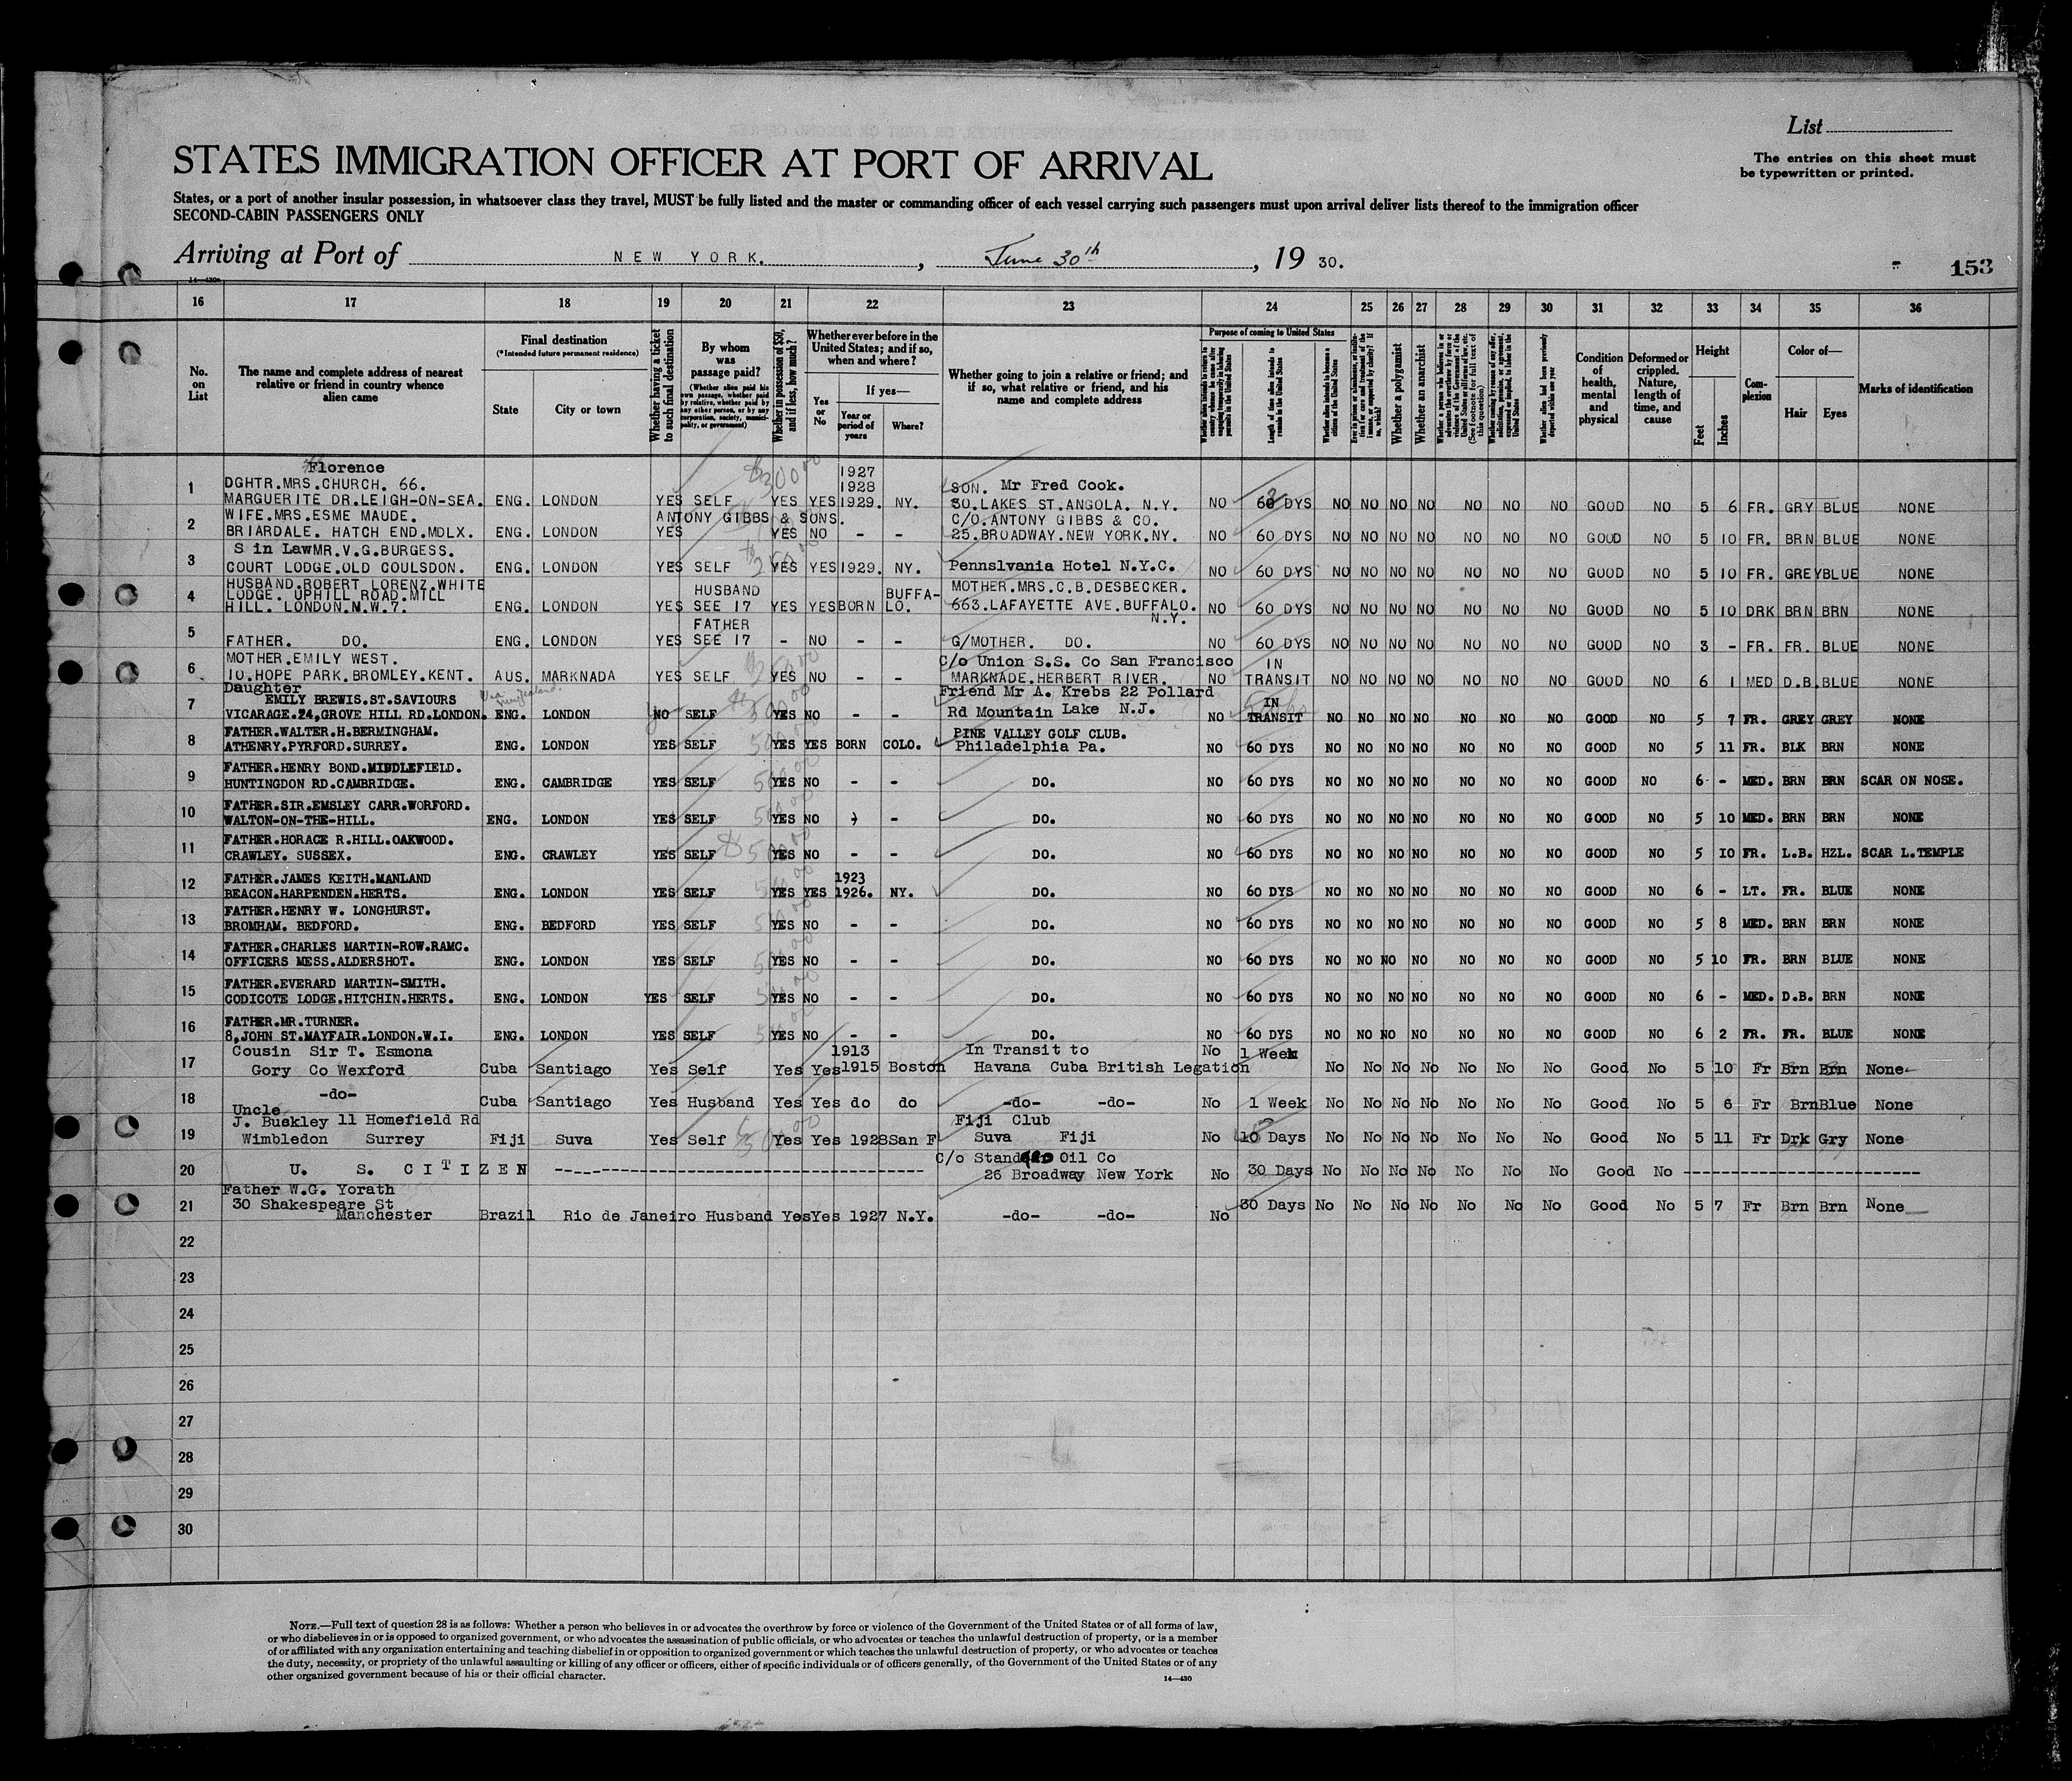 List
The entries on this sheet must
be typewritten or printed.
STATES IMMIGRATION OFFICER AT PORT OF ARRIVAL
States, or a port of another insular possession, in whatsoever class they travel, MUST be fully listed and the master or commanding officer of each vessel carrying such passengers must upon arrival deliver lists thereof to the immigration officer
SECOND-CABIN PASSENGERS ONLY
Arriving at Port of NEW YORK. , June 30th , 19 30.
153
16 17 18 19 20 21 22 23 24 25 26 27 28 29 30 31 32 33 34 35 36
No. on List
The name and complete address of nearest relative or friend in country whence alien came
Final destination
(*Intended future permanent residence)
State
City or town
Whether having a ticket to such final destination
By whom was passage paid?
(Whether alien paid his own passage, whether paid by relative, whether paid by any other person, or by any corporation, society, municipality, or government)
Whether in possession of $50, and if less, how much?
Whether ever before in the United States; and if so, when and where?
Yes or No
If yes—
Year or period of years
Where?
Whether going to join a relative or friend; and if so, what relative or friend, and his name and complete address
Purpose of coming to United States
Length of time alien intends to remain in the United States
Whether alien intends to become a citizen of the United States
Whether a polygamist
Whether an anarchist
Whether alien had been previously deported within one year
Condition of health, mental and physical
Deformed or crippled. Nature, length of time, and cause
Height
Feet
Inches
Complexion
Color of—
Hair
Eyes
Marks of identification
1 Florence DGHTR.MRS.CHURCH. 66. 1927 1928 SON. Mr Fred Cook.
MARGUERITE DR.LEIGH-ON-SEA. ENG. LONDON YES SELF $300.00 YES YES 1929. NY. 30.LAKES ST.ANGOLA. N.Y. NO 60 DYS NO NO NO NO NO NO NO GOOD NO 5 6 FR. GRY BLUE NONE
2 WIFE.MRS.ESME MAUDE. ANTONY GIBBS & SONS. C/O.ANTONY GIBBS & CO.
BRIARDALE. HATCH END.MDLX. ENG. LONDON YES YES NO - - 25.BROADWAY.NEW YORK.NY. NO 60 DYS NO NO NO NO NO NO NO GOOD NO 5 10 FR. BRN BLUE NONE
3 S in Law MR.V.G.BURGESS.
COURT LODGE.OLD COULSDON. ENG. LONDON YES SELF YES YES 1929. NY. Pennslvania Hotel N.Y.C. NO 60 DYS NO NO NO NO NO NO NO GOOD NO 5 10 FR. GREY BLUE NONE
4 HUSBAND.ROBERT LORENZ.WHITE HUSBAND BUFFA- MOTHER.MRS.C.B.DESBECKER.
LODGE. UPHILL ROAD.MILL
HILL. LONDON.N.W.7. ENG. LONDON YES SEE 17 YES YES BORN LO. 663.LAFAYETTE AVE.BUFFALO. N.Y. NO 60 DYS NO NO NO NO NO NO NO GOOD NO 5 10 DRK BRN BRN NONE
5 FATHER
FATHER. DO. ENG. LONDON YES SEE 17 - NO - - G/MOTHER. DO. NO 60 DYS NO NO NO NO NO NO NO GOOD NO 3 - FR. FR. BLUE NONE
6 MOTHER.EMILY WEST. C/o Union S.S. Co San Francisco IN
10.HOPE PARK.BROMLEY.KENT. AUS. MARKNADA YES SELF YES NO - - MARKNADE.HERBERT RIVER. NO TRANSIT NO NO NO NO NO NO NO GOOD NO 6 1 MED D.B. BLUE NONE
7 Daughter
EMILY BREWIS.ST.SAVIOURS Friend Mr A. Krebs 22 Pollard IN
VICARAGE.24,GROVE HILL RD.LONDON. ENG. LONDON NO SELF YES NO - - Rd Mountain Lake N.J. NO TRANSIT NO NO NO NO NO NO NO GOOD NO 5 7 FR. GREY GREY NONE
8 FATHER.WALTER.H.BERMINGHAM. PINE VALLEY GOLF CLUB.
ATHENRY.PYRFORD.SURREY. ENG. LONDON YES SELF YES YES BORN COLO. Philadelphia Pa. NO 60 DYS NO NO NO NO NO NO NO GOOD NO 5 11 FR. BLK BRN NONE
9 FATHER.HENRY BOND.MIDDLEFIELD.
HUNTINGDON RD.CAMBRIDGE. ENG. CAMBRIDGE YES SELF YES NO - - DO. NO 60 DYS NO NO NO NO NO NO NO GOOD NO 6 - MED. BRN BRN SCAR ON NOSE.
10 FATHER.SIR.EMSLEY CARR.WORFORD.
WALTON-ON-THE-HILL. ENG. LONDON YES SELF YES NO - DO. NO 60 DYS NO NO NO NO NO NO NO GOOD NO 5 10 MED. BRN BRN NONE
11 FATHER.HORACE R.HILL.OAKWOOD.
CRAWLEY. SUSSEX. ENG. CRAWLEY YES SELF YES NO - - DO. NO 60 DYS NO NO NO NO NO NO NO GOOD NO 5 10 FR. L.B. HZL. SCAR L.TEMPLE
12 FATHER.JAMES KEITH.MANLAND 1923
BEACON.HARPENDEN.HERTS. ENG. LONDON YES SELF YES YES 1926. NY. DO. NO 60 DYS NO NO NO NO NO NO NO GOOD NO 6 - LT. FR. BLUE NONE
13 FATHER.HENRY W. LONGHURST.
BROMHAM. BEDFORD. ENG. BEDFORD YES SELF YES NO - - DO. NO 60 DYS NO NO NO NO NO NO NO GOOD NO 5 8 MED. BRN BRN NONE
14 FATHER.CHARLES MARTIN-ROW.RAMC.
OFFICERS MESS.ALDERSHOT. ENG. LONDON YES SELF YES NO - - DO. NO 60 DYS NO NO NO NO NO NO NO GOOD NO 5 10 FR. BRN BLUE NONE
15 FATHER.EVERARD MARTIN-SMITH.
CODICOTE LODGE.HITCHIN.HERTS. ENG. LONDON YES SELF YES NO - - DO. NO 60 DYS NO NO NO NO NO NO NO GOOD NO 6 - MED. D.B. BRN NONE
16 FATHER.MR.TURNER.
8,JOHN ST.MAYFAIR.LONDON.W.I. ENG. LONDON YES SELF YES NO - - DO. NO 60 DYS NO NO NO NO NO NO NO GOOD NO 6 2 FR. FR. BLUE NONE
17 Cousin Sir T. Esmona 1913 In Transit to No 1 Week
Gory Co Wexford Cuba Santiago Yes Self Yes Yes 1915 Boston Havana Cuba British Legation No No No No No No No Good No 5 10 Fr Brn Brn None
18 -do- Cuba Santiago Yes Husband Yes Yes do do -do- -do- No 1 Week No No No No No No No Good No 5 6 Fr Brn Blue None
19 Uncle
J. Buckley 11 Homefield Rd Fiji Club
Wimbledon Surrey Fiji Suva Yes Self Yes Yes 1928 San F Suva Fiji No 10 Days No No No No No No No Good No 5 11 Fr Drk Gry None
20 U. S. CITIZEN C/o Standard Oil Co
26 Broadway New York No 30 Days No No No No No No No Good No
21 Father W.G. Yorath
30 Shakespeare St
Manchester Brazil Rio de Janeiro Husband Yes Yes 1927 N.Y. -do- -do- No 30 Days No No No No No No No Good No 5 7 Fr Brn Brn None
22
23
24
25
26
27
28
29
30
NOTE.—Full text of question 28 is as follows: Whether a person who believes in or advocates the overthrow by force or violence of the Government of the United States or of all forms of law,
or who disbelieves in or is opposed to organized government, or who advocates the assassination of public officials, or who advocates or teaches the unlawful destruction of property, or is a member
of or affiliated with any organization entertaining and teaching disbelief in or opposition to organized government or which teaches the unlawful destruction of property, or who advocates or teaches
the duty, necessity, or propriety of the unlawful assaulting or killing of any officer or officers, either of specific individuals or of officers generally, of the Government of the United States or of any
other organized government because of his or their official character.
14—430